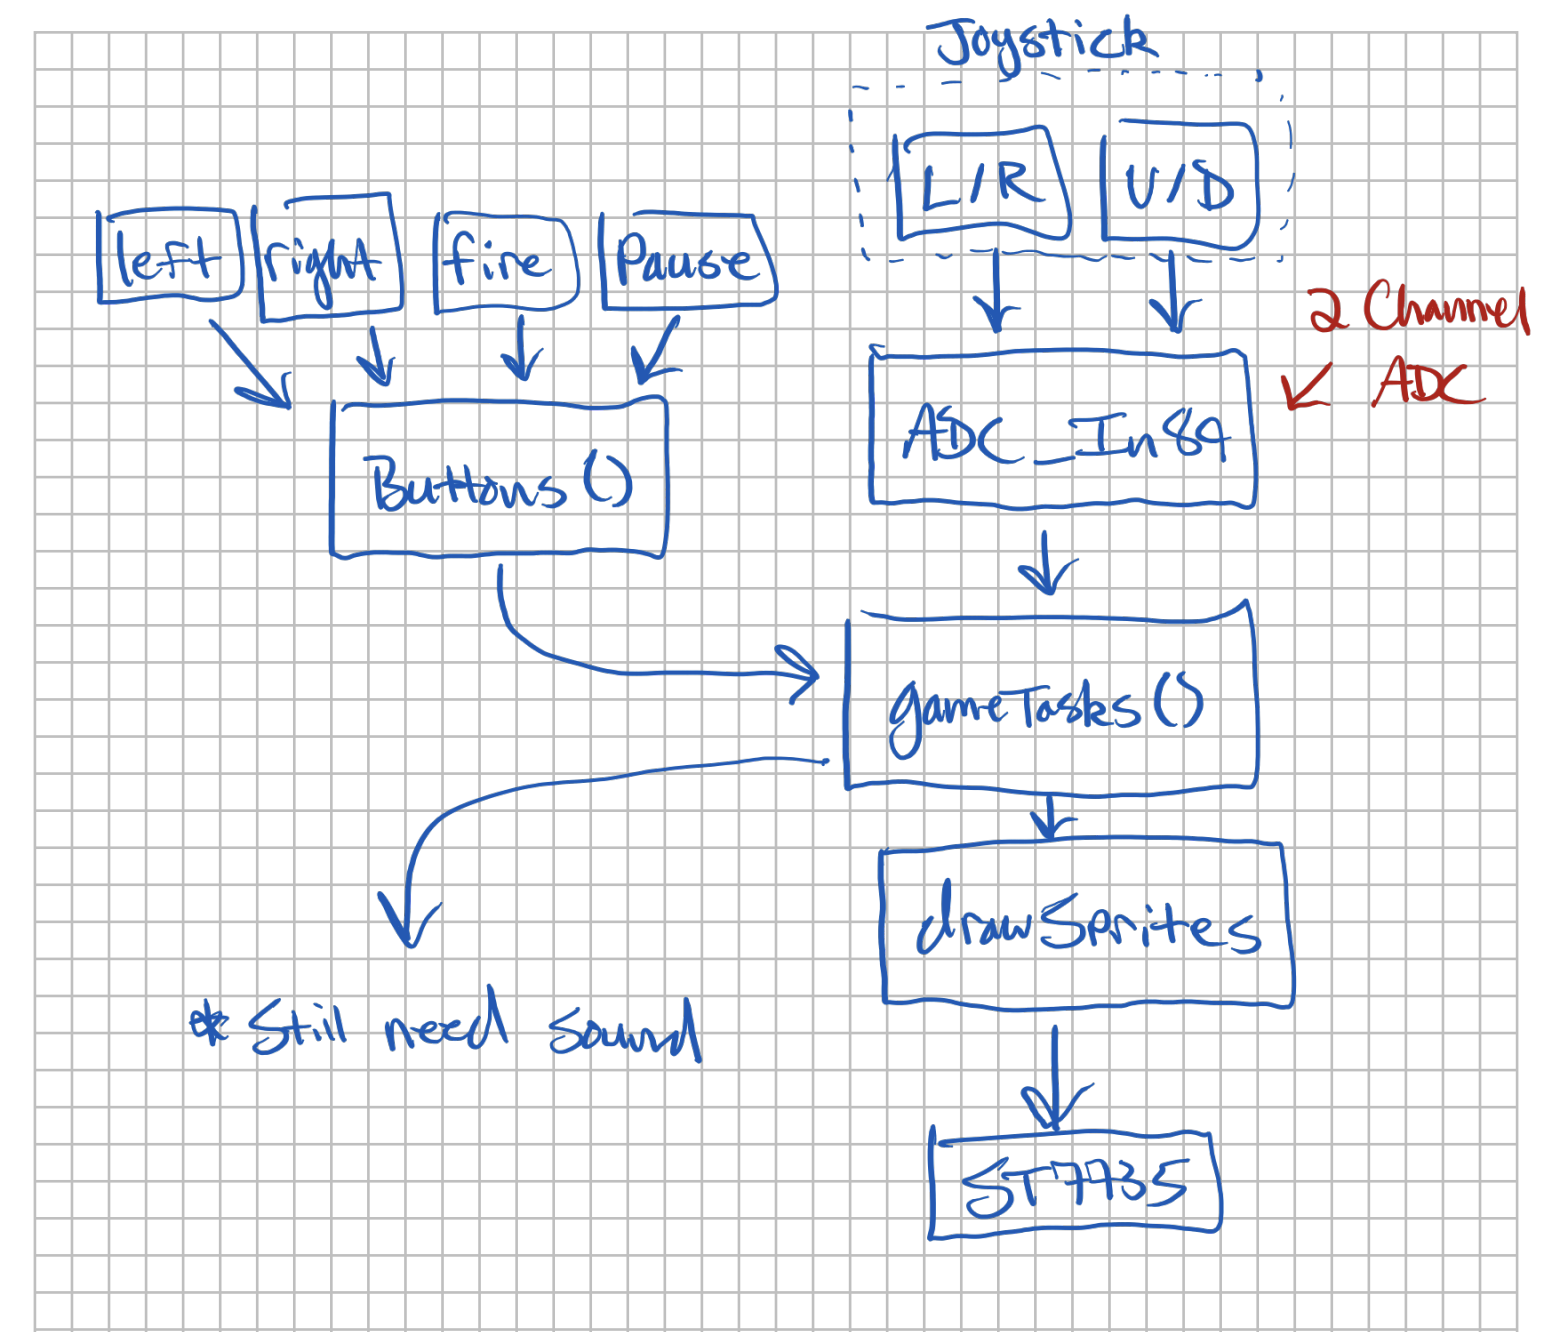 Joystick
L/R U/D
left right fire Pause
2 Channel
ADC
ADC_In89
Buttons()
gameTasks()
drawSprites
* Still need sound
ST7735